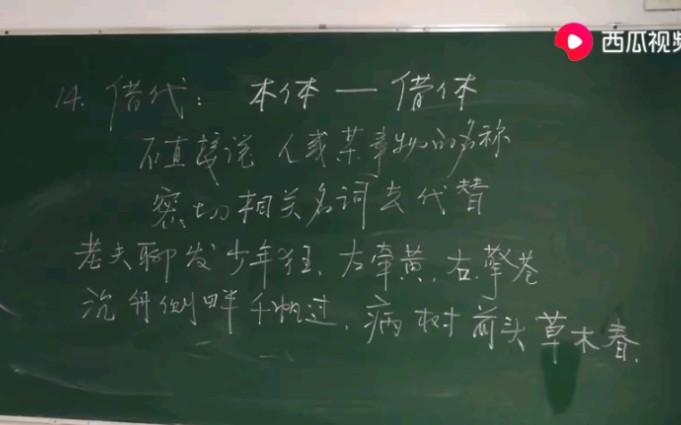 西瓜视频
14. 借代： 本体 — 借体
不直接说 人或某事物的名称
密切相关名词去代替
老夫聊发少年狂，左牵黄，右擎苍
沉舟侧畔千帆过，病树前头草木春.